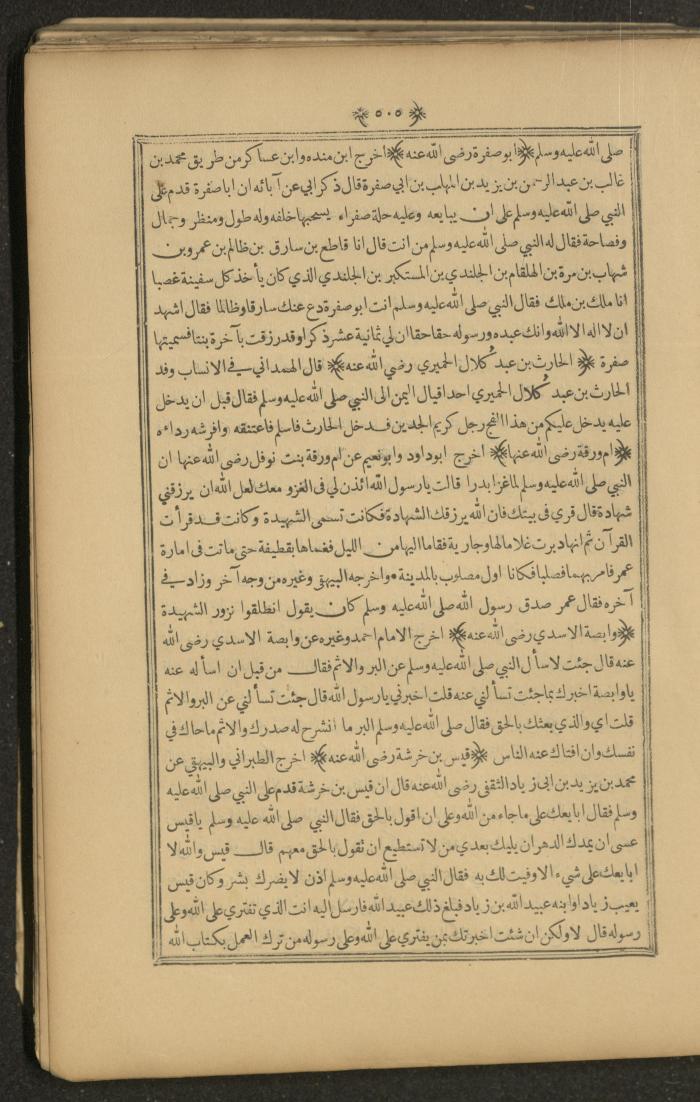 ﴿ ٥٠٥ ﴾
صلى الله عليه وسلم ﴿ابو صفرة رضى الله عنه﴾ اخرج ابن منده وابن عساكر من طريق محمد بن
غالب بن عبد الرحمن بن يزيد بن المهلب بن ابي صفرة قال ذكر ابي عن آبائه ان ابا صفرة قدم على
النبي صلى الله عليه وسلم على ان يبايعه وعليه حلة صفراء يسحبها خلفه وله طول ومنظر وجمال
وفصاحة فقال له النبي صلى الله عليه وسلم من انت قال انا قاطع بن سارق بن ظالم بن عمرو بن
شهاب بن مرة بن الهلقام بن الجلندي بن المستكبر بن الجلندي الذي كان يأخذ كل سفينة غصبا
انا ملك بن ملك فقال النبي صلى الله عليه وسلم انت ابو صفرة دع عنك سارقا وظالما فقال اشهد
ان لا اله الا الله وانك عبده ورسوله حقا حقا ان لي ثمانية عشر ذكرا وقد رزقت بآخرة بنتا فسميتها
صفرة ﴿ الحارث بن عبد كُلال الحميري رضي الله عنه﴾ قال الهمداني في الانساب وفد
الحارث بن عبد كُلال الحميري احد اقيال اليمن الى النبي صلى الله عليه وسلم فقال قبل ان يدخل
عليه يدخل عليكم من هذا الفج رجل كريم الجدين فدخل الحارث فاسلم فاعتنقه وافرشه رداءه
﴿ام ورقة رضى الله عنها﴾ اخرج ابو داود وابو نعيم عن ام ورقة بنت نوفل رضى الله عنها ان
النبي صلى الله عليه وسلم لما غزا بدرا قالت يا رسول الله ائذن لى فى الغزو معك لعل الله ان يرزقني
شهادة قال قري في بيتك فان الله يرزقك الشهادة فكانت تسمى الشهيدة وكانت قد قرأت
القرآن ثم انها دبرت غلاما لها وجارية فقاما اليها من الليل فغماها بقطيفة حتى ماتت فى امارة
عمر فامر بهما فصلبا فكانا اول مصلوب بالمدينة • واخرجه البيهقي وغيره من وجه آخر وزاد في
آخره فقال عمر صدق رسول الله صلى الله عليه وسلم كان يقول انطلقوا نزور الشهيدة
﴿وابصة الاسدي رضى الله عنه﴾ اخرج الامام احمد وغيره عن وابصة الاسدي رضى الله
عنه قال جئت لاسأل النبي صلى الله عليه وسلم عن البر والاثم فقال من قبل ان اسأله عنه
يا وابصة اخبرك بما جئت تسألني عنه قلت اخبرني يا رسول الله قال جئت تسألني عن البر والاثم
قلت اي والذي بعثك بالحق فقال صلى الله عليه وسلم البر ما انشرح له صدرك والاثم ما حاك في
نفسك وان افتاك عنه الناس ﴿قيس بن خرشة رضى الله عنه﴾ اخرج الطبراني والبيهقي عن
محمد بن يزيد بن ابى زياد الثقفى رضى الله عنه قال ان قيس بن خرشة قدم على النبي صلى الله عليه
وسلم فقال ابايعك على ما جاء من الله وعلى ان اقول بالحق فقال النبي صلى الله عليه وسلم يا قيس
عسى ان يمدك الدهر ان يليك بعدي من لا تستطيع ان تقول بالحق معهم قال قيس والله لا
ابايعك على شيء الا وفيت لك به فقال النبي صلى الله عليه وسلم اذن لا يضرك بشر وكان قيس
يعيب زيادا وابنه عبيد الله بن زياد فبلغ ذلك عبيد الله فارسل اليه انت الذي تفتري على الله وعلى
رسوله قال لا ولكن ان شئت اخبرتك بمن يفتري على الله وعلى رسوله من ترك العمل بكتاب الله